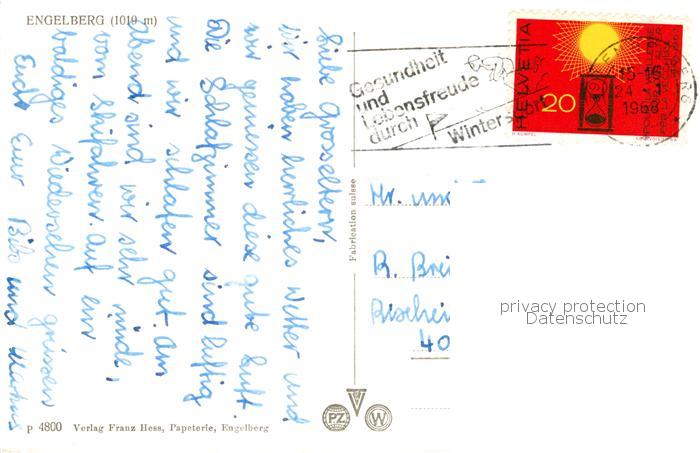 ENGELBERG (1019 m)
Liebe Grosseltern,
Wir haben herrliches Wetter und
wir geniessen diese gute Luft.
Die Schlafzimmer sind luftig
und wir schlafen gut. Am
Abend sind wir sehr müde,
vom Skifahren. Auf ein
baldiges Wiedersehen grüssen
Euch Eure Bibi und Markus
P 4800 Verlag Franz Hess, Papeterie, Engelberg
Fabrication suisse
Gesundheit
und
Lebensfreude
durch
Wintersport
HELVETIA
20
15-16
24. 1.
1968
Mr. und
R. Brei
Rischei
40
privacy protection
Datenschutz
PZ
W